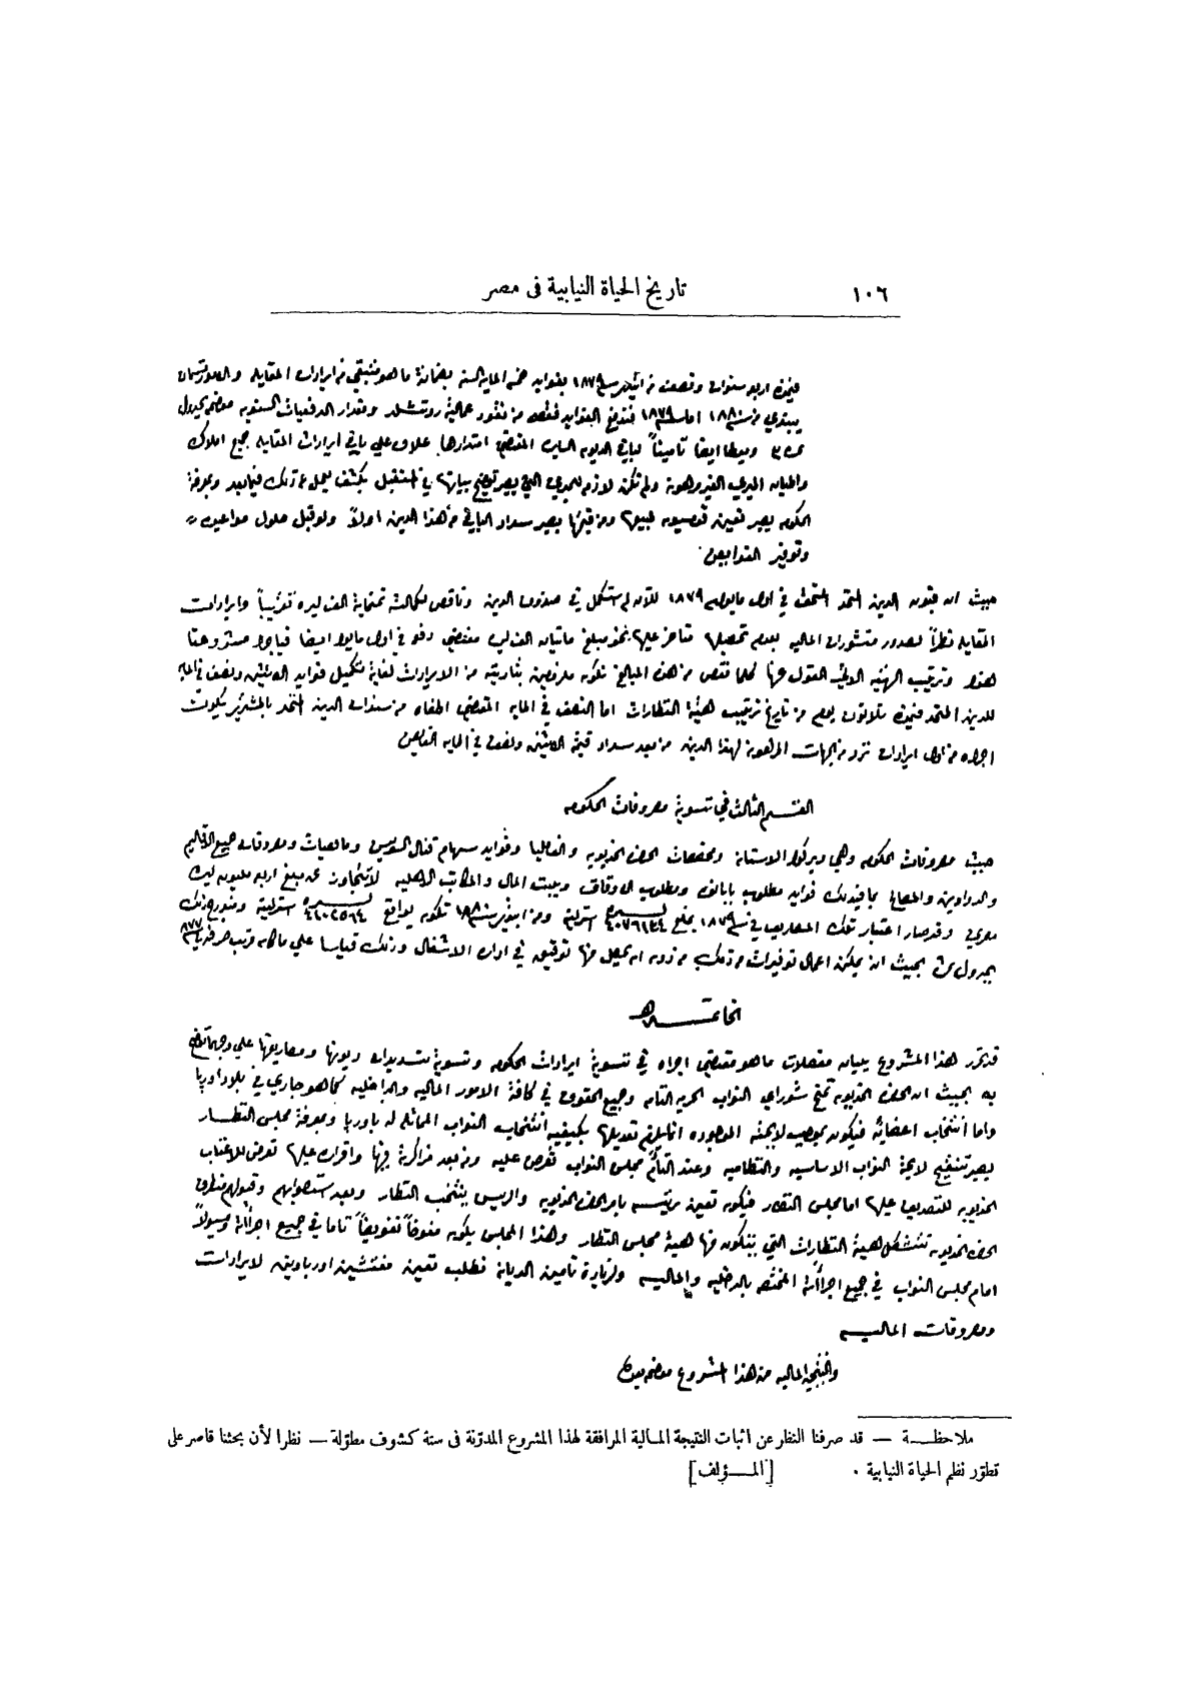 ١٠٦ تاريخ الحياة النيابية فى مصر
فيمدة اربع سنوات ونصف من ١٨٧٩ بفوايد خمسه المايه السنه بضمانة ما هو متبقي من ايرادات المقابله
يبتدي من سنة ١٨٨١ اما سنة ١٨٧٩ فتدفع الفوايد فقط من نقود عمالية روتشلد ومقدار الدفعيات السنويه موضحه بجدول
ويعطا ايضا تأميناً لباقي الديون السايره المقتضي اصدارها علاوة علي باقي ايرادات المقابله جميع املاك
والميري الغير مرهونة ولم تكن لازمه للميري التي يصير توضيح بيانها في المستقبل بكشف يعمل عن ذلك فيما بعد وبمعرفة
الحكومه يصير تعيين قومسيون لمبيعها ومن قيمتها يصير سداد الباقي من هذا الدين اولاً ولو قبل حلول مواعيده
وتوفير الفوايض
حيث ان كوبون الدين الموحد المستحق في اول مايو سنة ١٨٧٩ للآن لم استكمل في صندوق الدين وناقص لكماله ثمنماية الف ليره تقريباً وايرادات
المقابله نظراً لصدور منشورات الماليه بعدم تحصيلها متاخر عليها نحو مبلغ مايتان الف ليره مقتضي دفعه في اول مايو ايضا فباجراء مشروعنا
هذا وترتيب الهيئه الاتي القول عنها كلما نقص من هذه المبالغ تكون مدفوعين بتأديته من الايرادات لغاية تكميل فوايد الاثنين ونصف في المايه
للدين الموحد فيمدة ثلاثون يوم من تاريخ ترتيب هيئة النظارات اما النصف في المايه المقتضي اطفاه من سندات الدين الموحد بالمشتري يكون
اجراه من اول ايرادات ترد من الجهات المرهونة لهذا الدين من بعد سداد قيمة الاثنين ونصف في المايه الفوايض
القسم الثالث في تسوية مصروفات الحكومه
حيث مصروفات الحكومه وهي ويركو الاستانة ومخصصات الحضرة الخديويه والعائليا وفوايد سهام قنال السويس ومعاشات ومصروفات جميع الاقاليم
والدواوين والمصالح بما فيه ذلك فوايد مطلوب بابانى ومطلوب الاوقاف وبيت المال والمكاتب الاهليه لا تتجاوز عن مبلغ اربعه مليون ليره
مصري وقد صار اعتبار تلك المصاريف في سنة ١٨٧٩ بمبلغ ٤٠٧٦١٣٤ ليره استرلينة ومن ابتدى سنة ١٨٨٠ تكون بواقع ٤١٠٢٥٦٤ ليره استرلينة وموضح ذلك
بجدول بحيث انه يمكن اعمال توفيرات من ذلك من دون ان يحصل منها توقيف في ادارة الاشغال وذلك قياسا علي ما كان ترتب صرفه
الخاتمة
قد تحرر هذا المشروع ببيان مفصلات ما هو مقتضي اجراه في تسوية ايرادات الحكومه وتسوية تسديدات ديونها ومصاريفها علي وجه ما توضح
به بحيث ان الحضرة الخديويه تمنح شوراي النواب الحريه التامه وجميع الحقوق في كافة الامور الماليه والداخليه كما هو جاري في بلاد اوربا
واما انتخاب اعضائه فيكون بموجب لايحته الموجوده انما يلزم تعديلها بكيفية انتخاب النواب الماثله له باوربا وبمعرفة مجلس النظار
يصير تنقيح لايحة النواب الاساسيه والنظاميه وعند التآم مجلس النواب تعرض عليه ومن بعد مذاكرة فيها واقراره عليها تعرض للاعتاب
الخديويه للتصديق عليها اما مجلس النظار فيكون تعيين رئيسه بامر الحضرة الخديويه والريس ينتخب النظار وبعد استصوابهم وقبولهم من طرف
الحضرة الخديويه تتشكل هيئة النظارات التي يتكون منها هيئة مجلس النظار وهذا المجلس يكون مفوضاً تفويضاً تاما في جميع اجراآته مسؤلاً
امام مجلس النواب في جميع اجراآته المختصه بالداخليه والماليه ولزيادة تأمين الديانة نطلب تعيين مفتشين اوربيين لايرادات
ومصروفات الماليه
والنتيجة الماليه من هذا المشروع موضحه بعده
ملاحظــة — قد صرفنا النظر عن اثبات النتيجة المالية المرافقة لهذا المشروع المدوّنة فى ستة كشوف مطوّلة — نظرا لأن بحثنا قاصر على
تطوّر نظم الحياة النيابية . [المــؤلف]